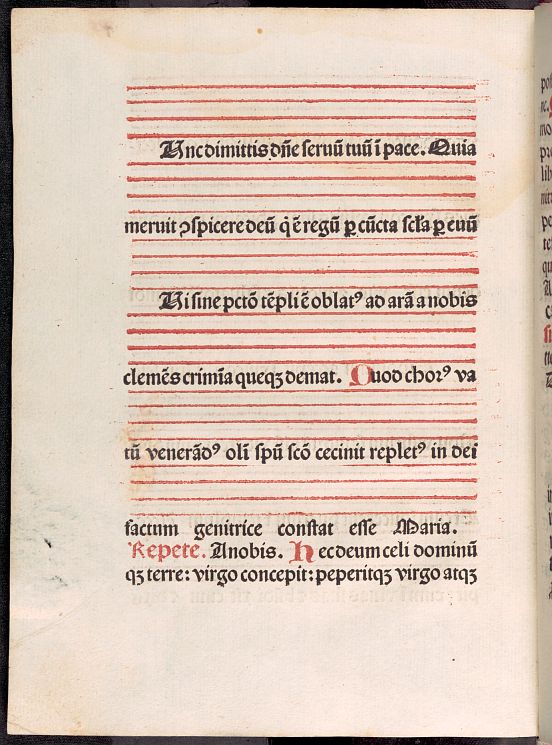 Nnc dimittis dn̄e seruū tuū ī pace. Quia
meruit ꝯspicere deū q̄ ē regū ꝑ cūcta scl̄a ꝑ euū
Ni sine pctō tēpli ē oblatꝰ ad arā a nobis
clemēs crimīa queqꝫ demat. Quod chorꝰ va
tū venerādꝰ oli̅ spū scō cecinit repletꝰ in dei
factum genitrice constat esse Maria.
Repete. Anobis. Hec deum celi dominū
qꝫ terre: virgo concepit: peperitqꝫ virgo atqꝫ